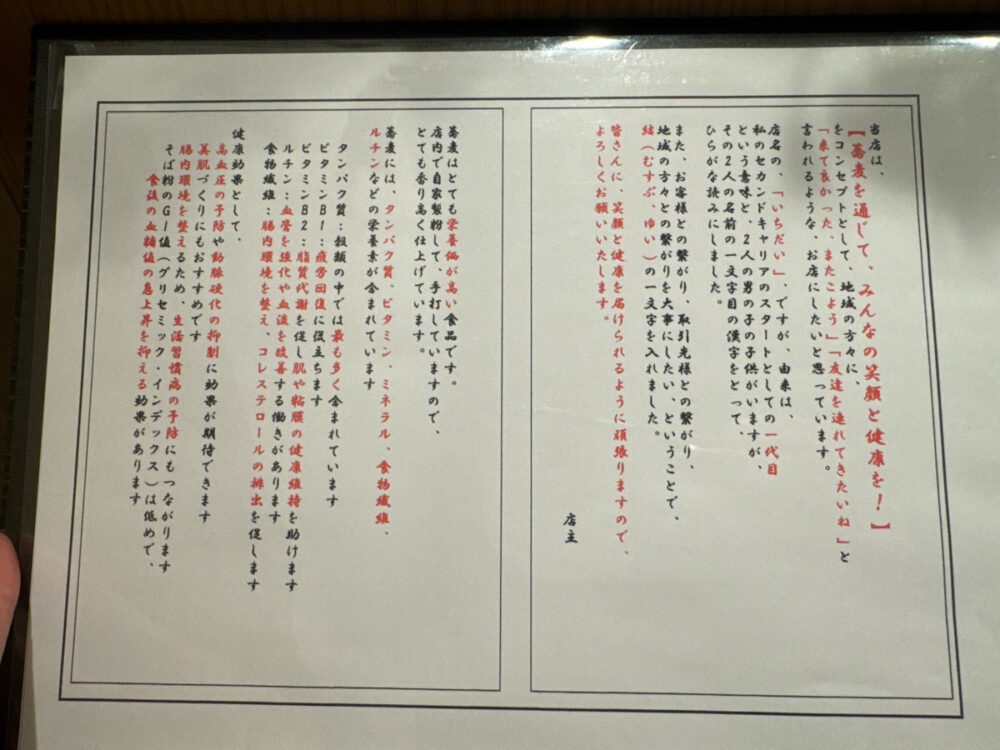 当店は、
【蕎麦を通して、みんなの笑顔と健康を！】
をコンセプトとして、地域の方々に、
「来て良かった、またこよう」「友達を連れてきたいね」と
言われるような、お店にしたいと思っています。
店名の、「いちだい」、ですが、由来は、
私のセカンドキャリアのスタートとしての一代目
という意味と、2人の男の子の子供がいますが、
その2人の名前の一文字目の漢字をとって、
ひらがな読みにしました。
また、お客様との繋がり、取引先様との繋がり、
地域の方々との繋がりを大事にしたい、ということで、
結（むすぶ、ゆい）の一文字を入れました。
皆さんに、笑顔と健康を届けられるように頑張りますので、
よろしくお願いいたします。
店主
蕎麦はとても栄養価が高い食品です。
店内で自家製粉して、手打していますので、
とても香り高く仕上げています。
蕎麦には、タンパク質、ビタミン、ミネラル、食物繊維、
ルチンなどの栄養素が含まれています
タンパク質：穀類の中では最も多く含まれています
ビタミンB1：疲労回復に役立ちます
ビタミンB2：脂質代謝を促し肌や粘膜の健康維持を助けます
ルチン：血管を強化や血流を改善する働きがあります
食物繊維：腸内環境を整え、コレステロールの排出を促します
健康効果として、
高血圧の予防や動脈硬化の抑制に効果が期待できます
美肌づくりにもおすすめです
腸内環境を整えるため、生活習慣病の予防にもつながります
そば粉のGI値（グリセミック・インデックス）は低めで、
食後の血糖値の急上昇を抑える効果があります